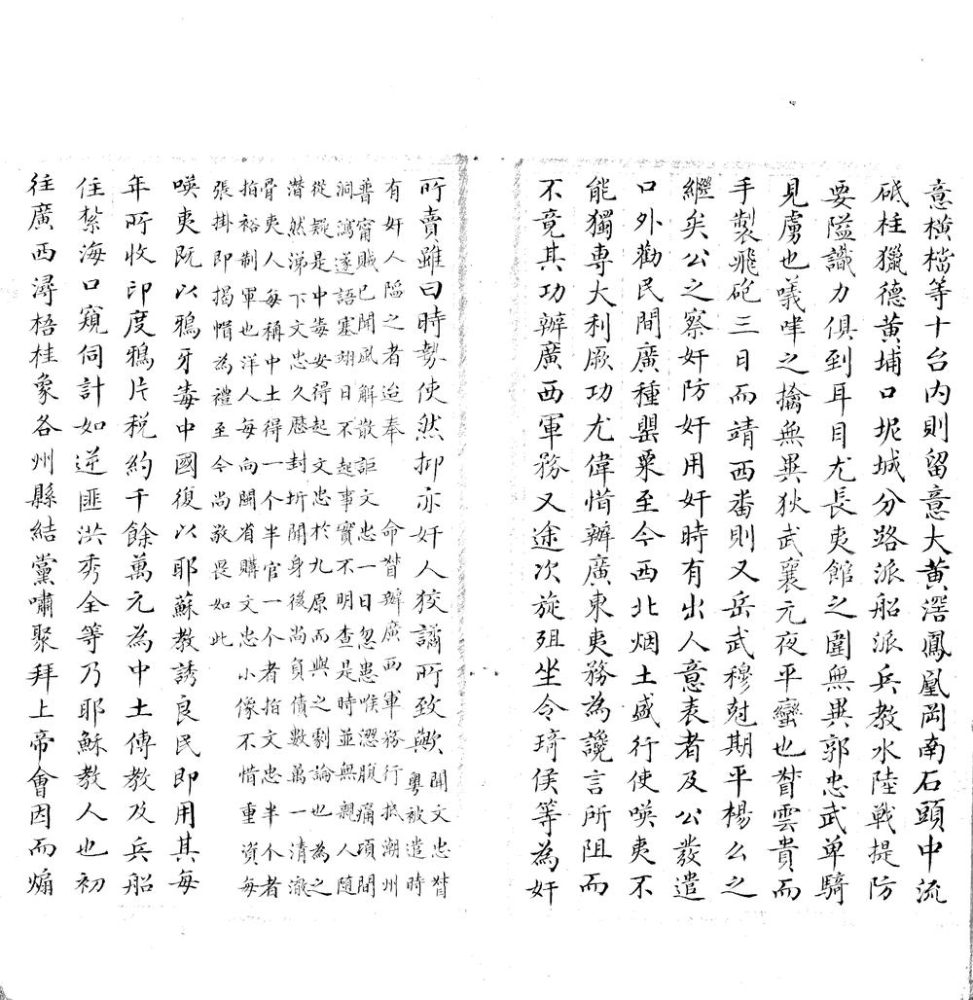 意橫檔等十台內則留意大黃滘鳳凰岡南石頭中流
砥柱獵德黃埔口坭城分路派船派兵教水陸戰提防
要隘識力俱到耳目尤長夷館之圍無異郭忠武单騎
見虜也𠸄咩之擒無異狄武襄元夜平蠻也督雲貴而
手製飛砲三日而靖西番則又岳武穆尅期平楊么之
繼矣公之察奸防奸用奸時有出人意表者及公發遣
口外勸民間廣種罌粟至今西北烟土盛行使暎夷不
能獨專大利厥功尤偉惜辦廣東夷務為讒言所阻而
不竟其功辦廣西軍務又途次旋殂坐令琦侯等為奸
所賣雖曰時勢使然抑亦奸人狡譎所致歟 聞文忠督
粵被遣時
有奸人隘之者迨奉 命督辦廣西軍務行抵潮州
普甯賊已聞風解散詎文忠一日忽患喉澀腹痛項間
洞瀉遂語塞翊日不起事實不明查是時並無親人隨
從疑是中毒安得起文忠於九原而與之劇論也為之
潜然涕下文忠久歷封圻聞身後尚負債數萬一清澈
骨夷人每稱中土得一个半官一个者拍文忠半个者
拍裕制軍也洋人每向閩省購文忠小像不惜重資每
張掛即揭帽為禮至今尚敬畏如此
暎夷既以鴉牙毒中國復以耶蘇教誘良民即用其每
年所收印度鴉片稅約千餘萬元為中土傳教及兵船
住紮海口窺伺計如逆匪洪秀全等乃耶穌教人也初
往廣西潯梧桂象各州縣結黨嘯聚拜上帝會因而煽